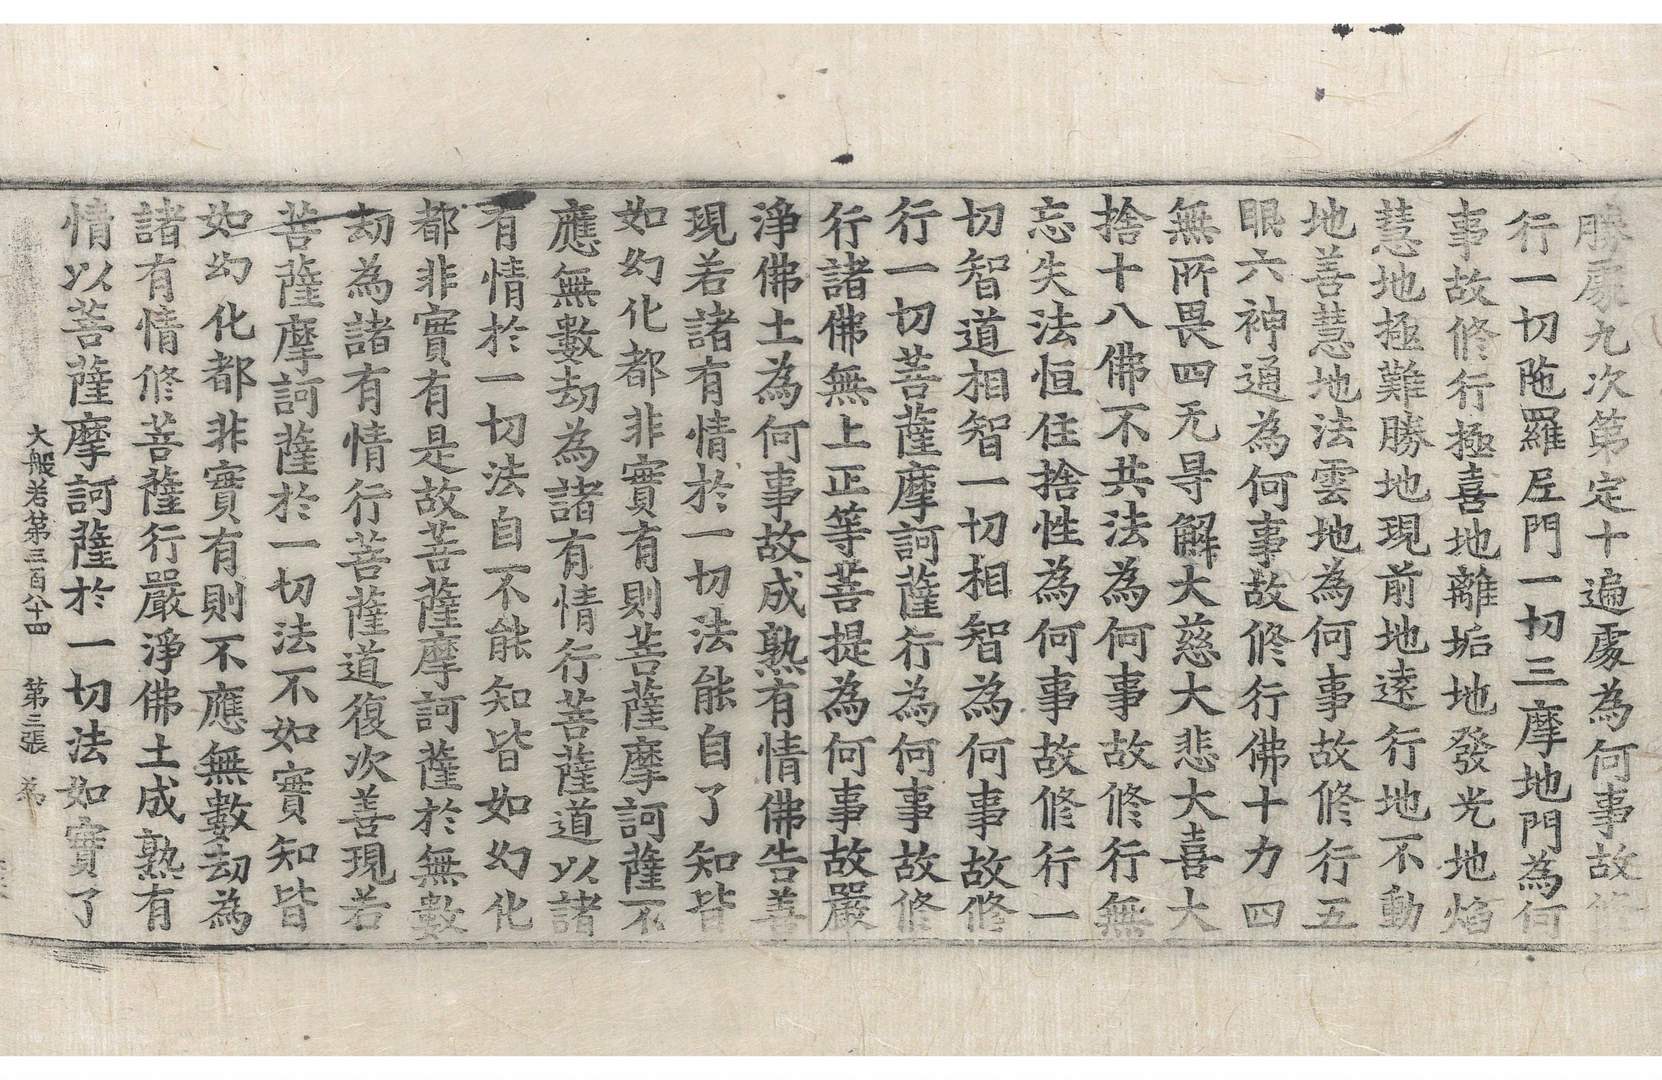 勝處九次第定十遍處為何事故修
行一切陁羅尼門一切三摩地門為何
事故修行極喜地離垢地發光地焰
慧地極難勝地現前地遠行地不動
地善慧地法雲地為何事故修行五
眼六神通為何事故修行佛十力四
無所畏四无㝵解大慈大悲大喜大
捨十八佛不共法為何事故修行無
忘失法恒住捨性為何事故修行一
切智道相智一切相智為何事故修
行一切菩薩摩訶薩行為何事故修
行諸佛無上正等菩提為何事故嚴
淨佛土為何事故成熟有情佛告善
現若諸有情於一切法能自了知皆
如幻化都非實有則菩薩摩訶薩不
應無數劫為諸有情行菩薩道以諸
有情於一切法自不能知皆如幻化
都非實有是故菩薩摩訶薩於無數
劫為諸有情行菩薩道復次善現若
菩薩摩訶薩於一切法不如實知皆
如幻化都非實有則不應無數劫為
諸有情修菩薩行嚴淨佛土成熟有
情以菩薩摩訶薩於一切法如實了
大般若第三百八十四 第三張